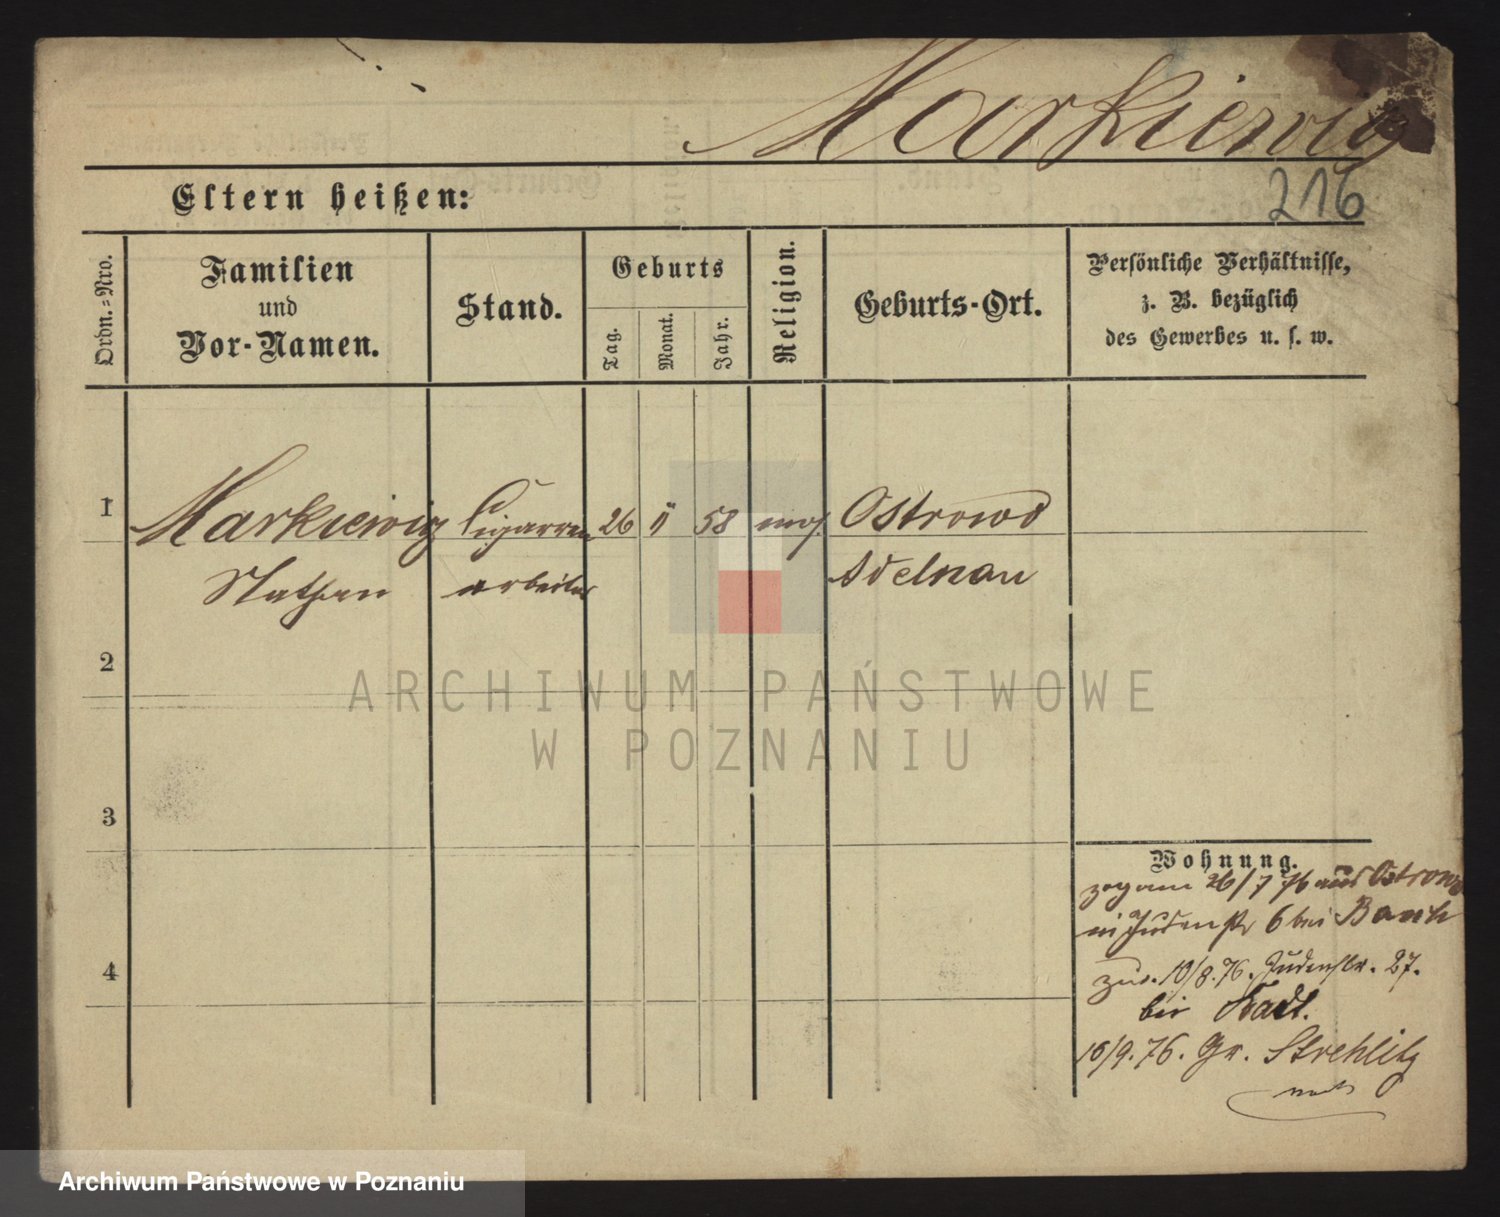 Markiewitz
Eltern heißen:
216
Ordn.-Nro.
Familien
und
Vor-Namen.
Stand.
Geburts
Tag.
Monat.
Jahr.
Religion.
Geburts-Ort.
Persönliche Verhältnisse,
z. B. bezüglich
des Gewerbes u. s. w.
1
Markiewitz Cigarren 26 11 58 mos. Ostrowo
Nathan arbeiter Adelnau
2
ARCHIWUM PAŃSTWOWE
W POZNANIU
3
Wohnung.
zog am 26/7 76 aus Ostrowo
in Judenstr 6 bei
4
10/8.76. Judenstr. 27.
bei
10/9.76. Gr. Strehlitz
Archiwum Państwowe w Poznaniu